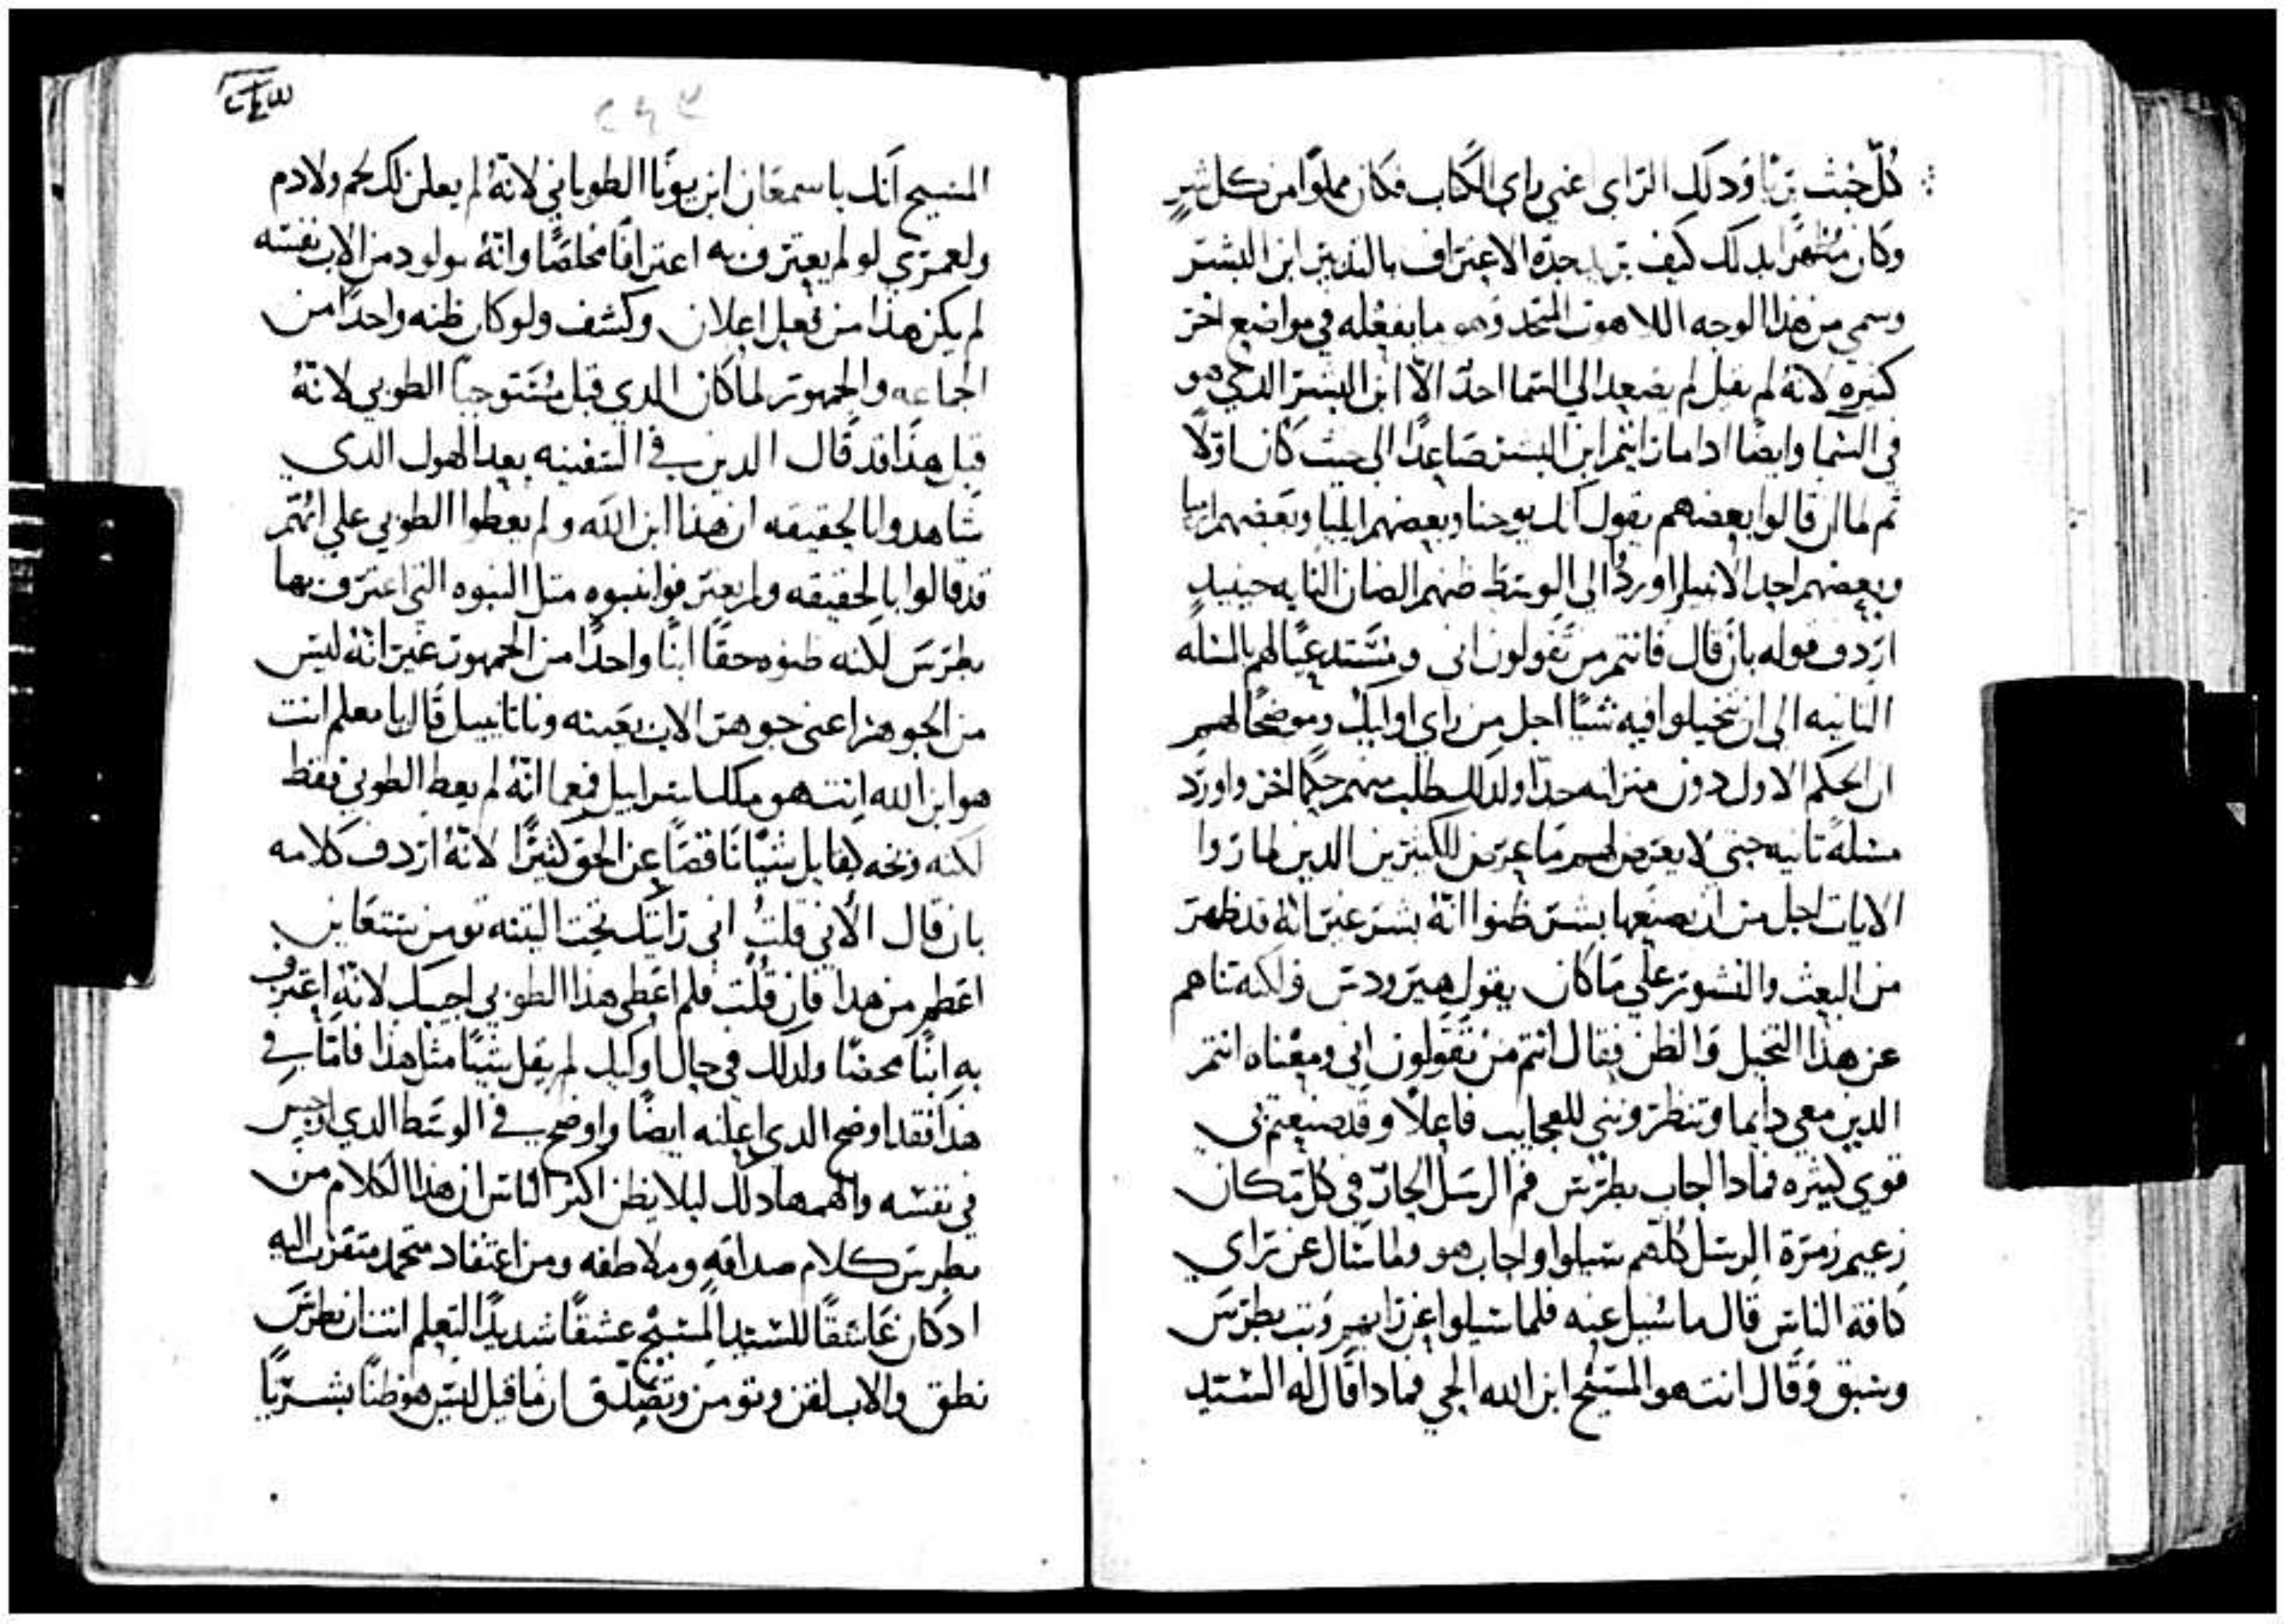 كل خبث بريا ودلك الراى اعني راي الكتاب فكان مملوا من كل شر
وكان مُظهرًا بدلك كيف يريد جدّه الاعتراف بالتدبير ابن البشر
وسمي من هذا الوجه اللاهوت المتحد وهو ما يفعله في مواضع اخر
كثيره لانه لم يقل لم يصعد الي السما احدٌ الاّ ابن البشر الدي هو
في السما وايضًا ادا ما رايتم ابن البشر صَاعدًا الى حيث كان اولاً
ثم لما ان قالوا بعضهم يقول انك يوحنا وبعضهم ايليا وبعضهم ارميا
وبعضهم احد الانبيا واوردُا الى الوسَط ظنهم الضان التايه حينيدٍ
اردف قوله بان قال فانتم من تقولون انى ومُستدعيًا لهم بالمسَله
الثانيه الى ان يتخيلوا فيه شيًا اجل من راي اوليك وموضحًا لهم
ان الحكم الاول دون منزلته جدًا ولدلك يطلب منهم حكمًا اخر واورد
مسَلةً ثانيه حتى لا يعرض لهم ما عرض للكثيرين الدين لما راوا
الايات اجل من ان يصنعها بشر ظنوا انّهُ بشر غير انهُ قد ظهر
من البعث والنشور علي ما كان يقول هيرودس ولكنه تناهم
عن هذا التخيل والظن فقال انتم من تقولون اني ومعناه انتم
الدين معي دايما وتنظرونني للعجايب فاعلاً وقد صنعتم بى
قوي كثيره فمادا اجاب بطرس فم الرسل الحارّ في كل مكان
زعيم زمرة الرسل كلهم سيلوا واجاب هو ولما سَال عن راي
كافة الناس قال ما سُيل عنه فلما سيلوا عن رايهم وثب بطرس
وسَبق وقال انت هو المسيح ابن الله الحي فمادا قال له السَيد
المسيح انك يا سمعان ابن يونا الطوباني لانهُ لم يعلن لك لحم ولا دم
ولعمري لو لم يعترف به اعترافًا مخلصًا وانّهُ مولود من الاب نفسه
لم يكن هذا من فعل اعلان وكشف ولو كان ظنه واحدًا من
الجماعه والجمهور لما كان الدي قبل مُستوجبًا الطوبي لانّهُ
قبل هذا قد قال الدين في السفينه بعد الهول الدي
شاهدوا بالحقيقه ان هذا ابن الله ولم يعطوا الطوبي علي انهم
قد قالوا بالحقيقه ولم يعترفوا ببنوه مثل البنوه التي اعترف بها
بطرس لكنه ظنوه حقًا ابنًا واحدًا من الجمهور غير انهُ ليس
من الجوهر اعني جوهر الاب بعينه وناتانييل قال يا معلم انت
هو ابن الله انت هو ملك اسراييل فيما انّهُ لم يعط الطوبي فقط
لكنه وبخه كقايل شيًّا ناقصًا عن الحق كثيرًا لانهُ اردف كلامه
بان قال الأنى قلتُ انى رايتك تحت التينه تومن ستعاين
اعظم من هدا فان قلت فلم اعطى هذا الطوبي اجيبك لانه اعترف
به ابنًا محضًا ولدلك في حال اوليك لم يقل شيًا مثل هذا فامّا في
هذا فقد اوضح الدي اعلنه ايضًا واوضح في الوسَط الدي
في نفسه والهمها دلك ليلا يظن اكثر الناس ان هدا الكلام من
بطرس كلام صداقه وملاطفه ومن اعتقاد متحمد متقرب اليه
اد كان عَاشقًا للسَيد المسيح عشقًا شديدًا لتعلم انتَ ان بطرس
نطق والاب لقن وتومن وتصدّق ان ما قيل ليس هو ظنًا بشريًا